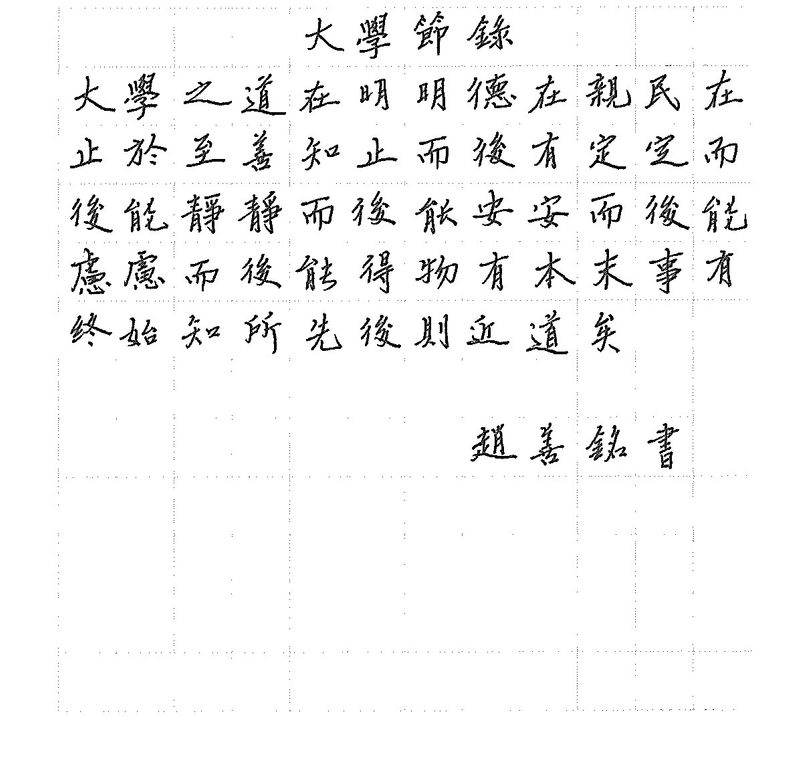 大學節錄
大學之道在明明德在親民在
止於至善知止而後有定定而
後能靜靜而後能安安而後能
慮慮而後能得物有本末事有
終始知所先後則近道矣
趙善銘書